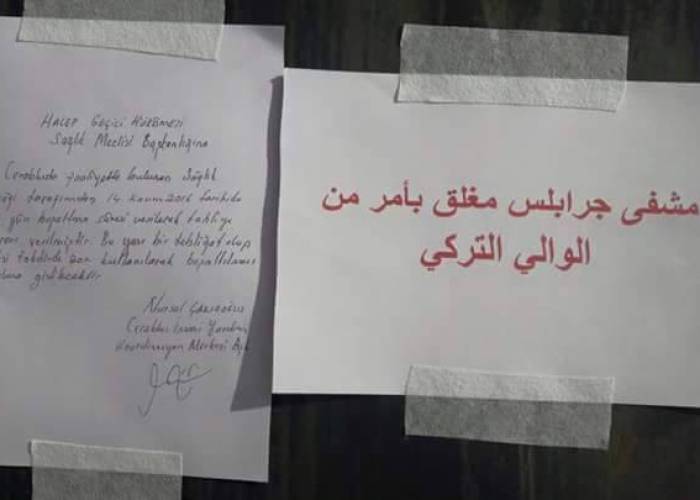 HALEP GEÇİCİ HÜKÜMETİ
Sağlık Meclisi Başkanlığına
Cerablusda faaliyette bulunan Sağlık
tarafımdan 14 Kasım 2016 tarihinde
gün boşaltma süresi verilerek tahliye
verilmiştir. Bu yazı bir tebligat olup
takdirde zor kullanılarak boşaltılması
gidilecektir.
Nursal ÇAKIROĞLU
Cerablus İnsani Yardım
Koordinasyon Merkezi Bşk.
مشفى جرابلس مغلق بأمر من
الوالي التركي